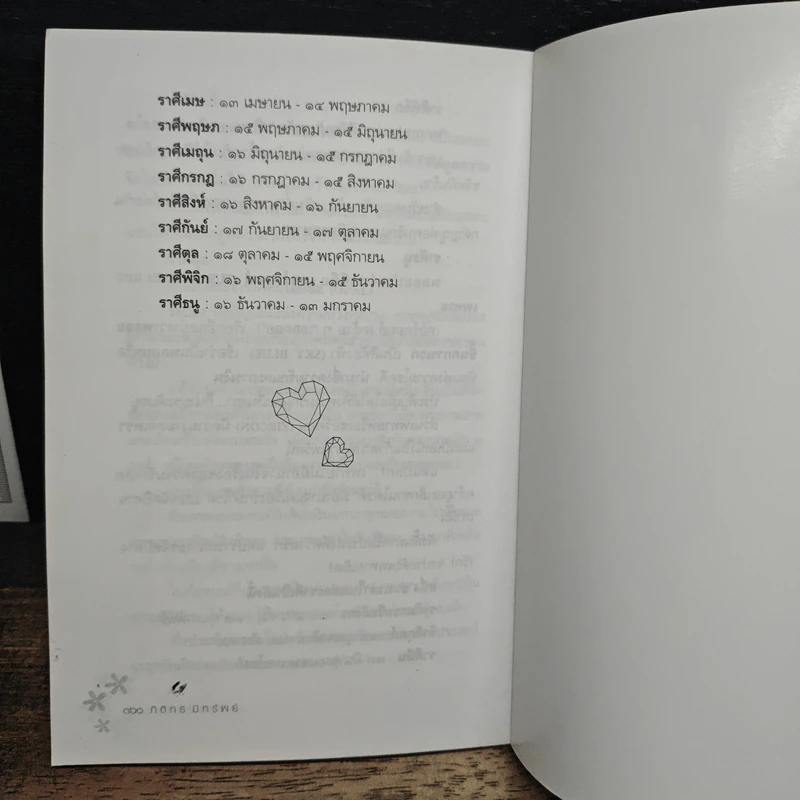 ราศีเมษ : ๑๓ เมษายน - ๑๔ พฤษภาคม
ราศีพฤษภ : ๑๕ พฤษภาคม - ๑๕ มิถุนายน
ราศีเมถุน : ๑๖ มิถุนายน - ๑๕ กรกฎาคม
ราศีกรกฎ : ๑๖ กรกฎาคม - ๑๕ สิงหาคม
ราศีสิงห์ : ๑๖ สิงหาคม - ๑๖ กันยายน
ราศีกันย์ : ๑๗ กันยายน - ๑๗ ตุลาคม
ราศีตุล : ๑๘ ตุลาคม - ๑๕ พฤศจิกายน
ราศีพิจิก : ๑๖ พฤศจิกายน - ๑๕ ธันวาคม
ราศีธนู : ๑๖ ธันวาคม - ๑๓ มกราคม